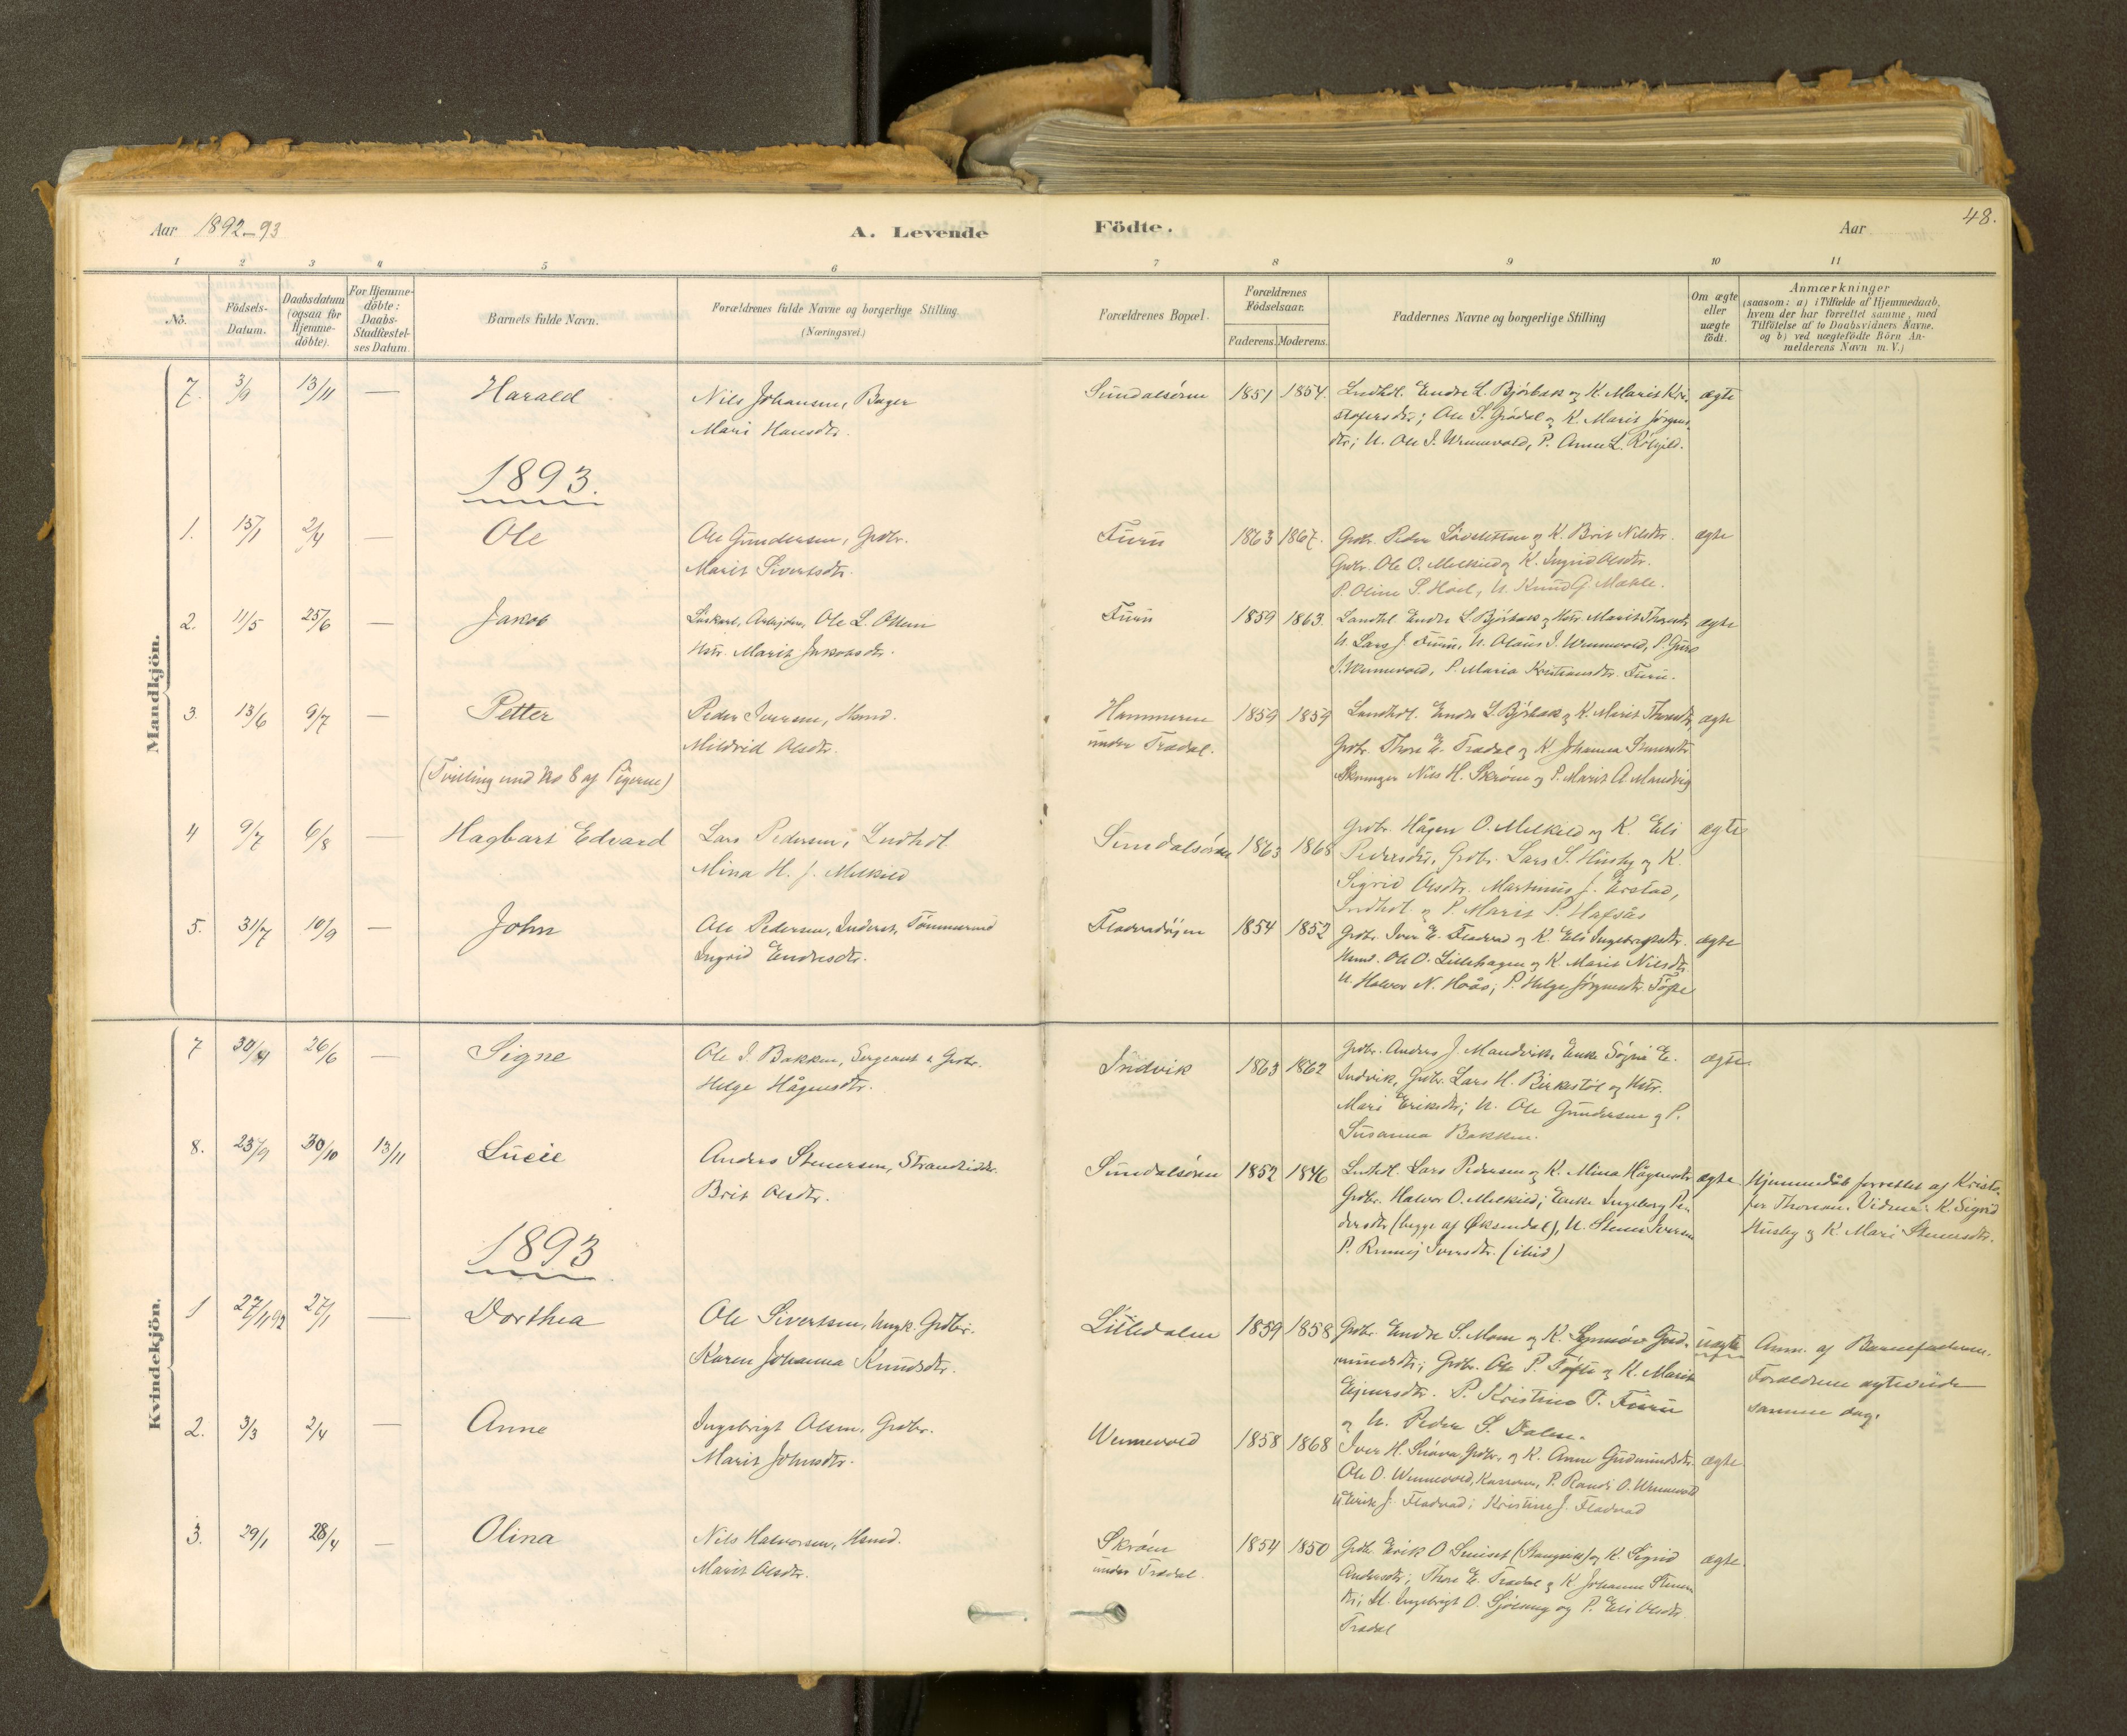 Aar 1892-93
A. Levende
Födte.
Aar
48.
1 2 3 4 5 6 7 8 9 10 11
No.
Födsels-
Datum.
Daabsdatum
(ogsaa for
Hjemme-
döbte).
For Hjemme-
döbte:
Daabs-
Stadfæstel-
ses Datum.
Barnets fulde Navn.
Forældrenes fulde Navne og borgerlige Stilling
(Næringsvei.)
Forældrenes Bopæl.
Forældrenes
Födselsaar.
Faderens. Moderens.
Faddernes Navne og borgerlige Stilling
Om ægte
eller
uægte
födt.
Anmærkninger
(saasom: a) i Tilfælde af Hjemmedaab,
hvem der har forrettet samme, med
Tilföielse af to Daabsvidners Navne.
og b) ved uægtefödte Börn An-
melderens Navn m. V.)
Mandkjön.
7. 3/9 13/11 — Harald
Nils Johansen, Bager
Mari Hansdtr.
Sundalsøren 1851 1854.
Lndhdl. Endre L. Bjørbak og K. Marit Kri-
stofersdtr; Ole S. Grødal og K. Marit Jørgens-
dtr; U. Ole I. Wennevold, P. Anne L.
ægte
1893.
1. 15/1 2/4 — Ole
Ole Gundersen, Grdbr.
Marit Sivertsdtr.
Furu 1863 1867.
Grdbr. Peder og K. Brit Nilsdtr.
Grdbr. Ole O. Melkild og K. Ingrid Olsdtr.
P. Oline S. Hoel, U. Knud G. Mæhle.
ægte
2. 11/5 25/6 — Jakob
Arbejder, Ole L.
Hstr. Marit Jakobsdtr.
Furu 1859 1863.
Landhl. Endre L. Bjørbak og Hstr. Marit
U. Lars J. Furu, U. Olaus I. Wennevold, P. Guro
I. Wennevold, P. Maria Kristiansdtr. Furu.
ægte
3. 13/6 9/7 — Petter
Peder Iversen, Hsmd.
Mildrid Olsdtr.
(Tvilling med No 8 af Pigerne)
Hammeren
under Trædal.
1859 1859
Landhdl. Endre L. Bjørbak og K. Marit
Grdbr. Thore E. Trædal og K. Johanna
Nils H. Skrøm og P. Marit A. Mandvig
ægte
4 9/7 6/8 — Hagbart Edvard
Lars Pedersen, Lndhdl.
Mina H. J. Melkild
Sundalsøren 1863 1868
Grdbr. Hågen O. Melkild og K. Eli
Pedersdtr, Grdbr. Lars S. Husby og K.
Sigrid Olsdtr. Martinus J. Ørstad,
Lndhdl. og P. Marit P. Hafsås
ægte
5. 31/7 10/9 — John
Ole Pedersen, Inderst, Tømmermd
Ingrid Endresdtr.
Fladvadøien 1854 1852
Grdbr. Iver E. Fladvad og K. Eli Ingebrigtsdtr.
Hsmd. Ole O. Lillehagen og K. Marit Nilsdtr.
U. Halvor N. Hoås, P. Helge Jørgensdtr. Tøfte
ægte
Kvindekjön.
7 30/4 26/6 — Signe
Ole I. Bakken, Sergeant & Grdbr.
Helge Hågensdtr.
Indvik 1863 1862
Grdbr. Anders J. Mandvik, Enke E.
Indvik, Grdbr. Lars H. Birkestøl og Hstr.
Mari Eriksdtr; U. Ole Gundersen og P.
Susanna Bakken.
ægte.
8. 25/9 30/10 13/11 Lucie
Anders Stenersen, Strandsidder.
Brit Olsdtr.
Sundalsøren 1852 1846
Lndhdl. Lars Pedersen og K. Mina Hågensdtr
Grdbr. Halvor O. Melkild; Enke Ingeborg Pe-
dersdtr (begge af Øksendal), U. Stener Iversen
P. Iversdtr. (ibid)
ægte.
Hjemmedåb forrettet af Kristo-
fer Vidner: K. Sigrid
Husby og K. Mari Stenersdtr.
1893
1 27/11 92 27/1 — Dorthea
Ole Sivertsen, Ungk. Grdbr.
Karen Johanna Knudsdtr.
Lilledalen 1859 1858
Grdbr. Endre S. Moen og K. Synnøve Gud-
mundsdtr; Grdbr. Ole P. Tøfte og K. Marit
Ejnersdtr. P. Kristine T. Furu
og U. Peder S. Dalen.
uægte
Anm. af Barnefaderen.
Forældrene ægteviede
samme dag.
2. 3/3 2/4 — Anne
Ingebrigt Olsen, Grdbr.
Marit Johnsdtr.
Wennevold 1858 1868
Iver H. Grdbr. og K. Anne Gudmundsdtr.
Ole O. Wennevold, P. Randi O. Wennevold
U. Eirik J. Fladvad; Kristine J. Fladvad
ægte
3. 29/1 28/4 — Olina
Nils Halvorsen, Hsmd.
Marit Olsdtr.
Skrøm
under Trædal.
1854 1850
Grdbr. Erik O. (Stangvik) og K. Sigrid
Andersdtr; Thore E. Trædal og K. Johanna Steners-
dtr; U. Ingebrigt O. og P. Eli Olsdtr.
Trædal
ægte.